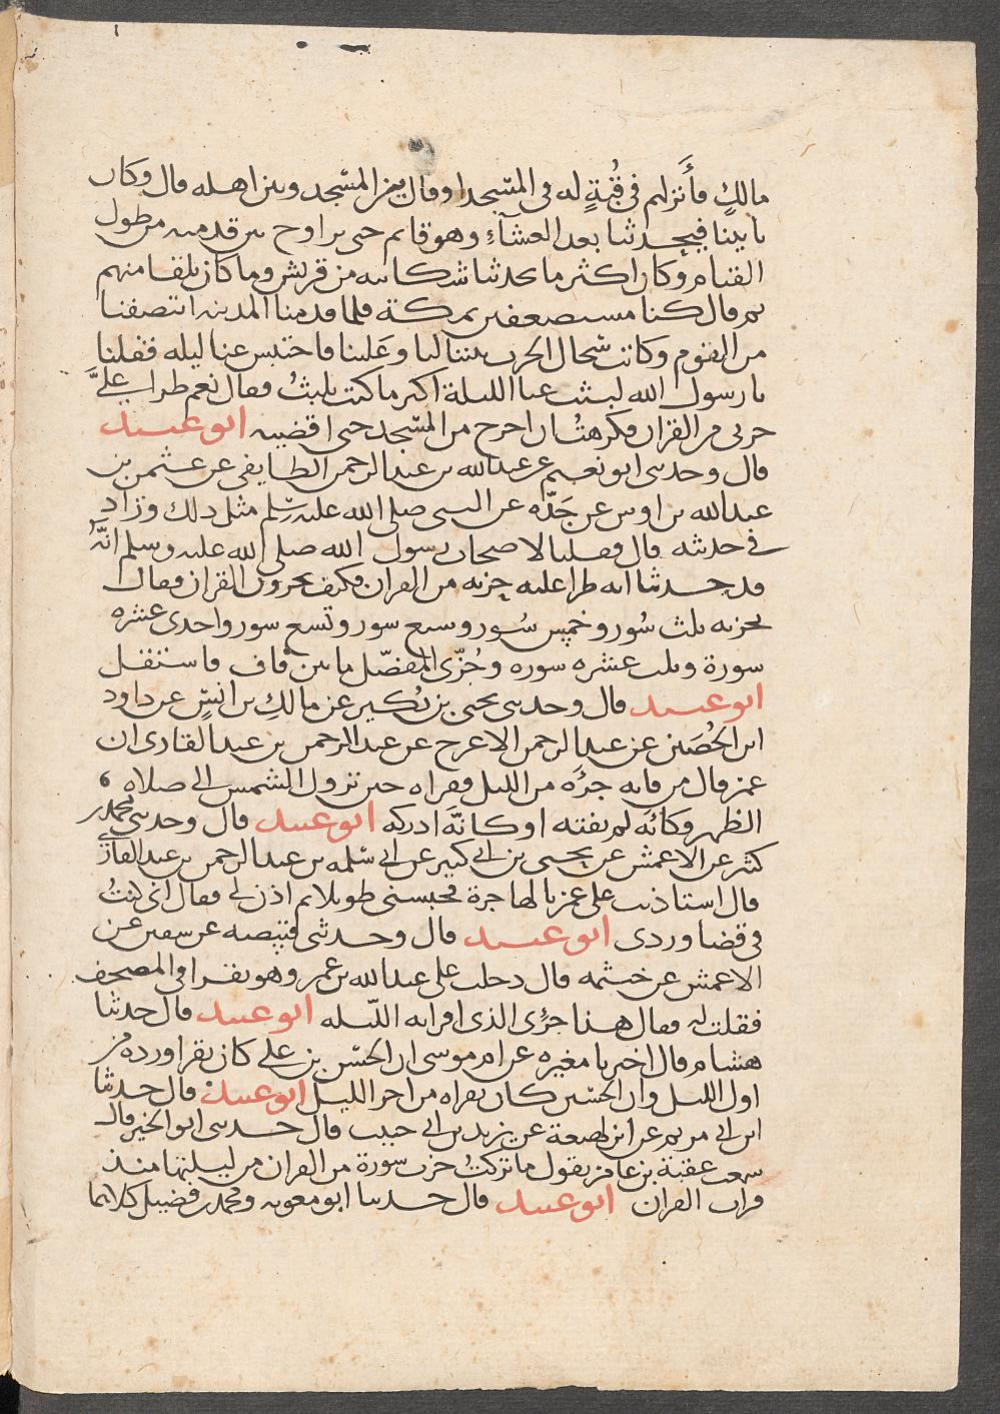 مالك فأنزلهم في قُبّةٍ له في المسجد او قال بين المسجد وبين اهله قال وكان
ياتينا فيحدثنا بعد العشآء وهو قايم حتى يراوح بين قدميه من طول
القيام وكان اكثر ما يحدثنا شكايته من قريش وما كان يلقا منهم
ثم قال كنا مستضعفين بمكة فلما قدمنا المدينه انتصفنا
من القوم وكانت سِجال الحرب بيننا لنا وعَلينا فاحتبس عنا ليله فقلنا
يا رسول الله لبثت عنا الليلة اكثر ما كنت تلبثُ فقال نعم طرا عليَّ
حزبي من القران فكرهت ان اخرج من المسجد حتى اقضيه ابو عبيد
قال وحدثني ابو نعيم عن عبدالله بن عبد الرحمن الطايفي عن عثمن بن
عبدالله بن اوس عن جَدّه عن النبي صلى الله عليه وسلم مثل ذلك وزاد
في حديثه قال فقلنا لاصحاب رسول الله صلى الله عليه وسلم انَّه
قد حدثنا انه طرا عليه حزبه من القران فكيف تحزبون القران فقالوا
نحزبه ثلث سُور وخمس سُور وسبع سور وتسع سور واحدى عشره
سورة وثلث عشره سوره وحُزّى المفصّل ما بين قاف فاستقل
ابو عبيد قال وحدثني يحيى بن بُكير عن مالك بن انسٍ عن داود
ابن الحُصَين عن عبد الرحمن الاعرج عن عبد الرحمن بن عبد القاري ان
عمر قال من فاته جزؤه من الليل فقراه حين تزول الشمس الى صلاه
الظهر وكانَّه لم يفته او كانَّه ادركه ابو عبيد قال وحدثني محمد بن
كثير عن الاعمش عن يحيى بن ابي كثير عن ابي سلمه بن عبد الرحمن بن عبد القاري
قال استاذنت على عمر بالهاجرة فحبسني طويلا ثم اذن لي فقال اني كنتُ
في قضا وردي ابو عبيد قال وحدثني قبيصه عن سفين عن
الاعمش عن خيثمه قال دخلت على عبد الله بن عمر وهو يقرا في المصحف
فقلت له فقال هذا جزئي الذي اقرا به الليله ابو عبيد قال حدثنا
هشام قال اخبرنا مغيره عن ام موسى ان الحسن بن علي كان يقرا ورده من
اول الليل وان الحسين كان يقراه من اخر الليل ابو عبيد قال حدثنا
ابن ابي مريم عن ابن لهيعة عن يزيد بن ابي حبيب قال حدثني ابو الخير قال
سمعت عقبة بن عامر يقول ما تركتُ حزب سورة من القران من ليلتها منذ
قرات القران ابو عبيد قال حدثنا ابو معويه ومحمد بن فضيل كلاهما